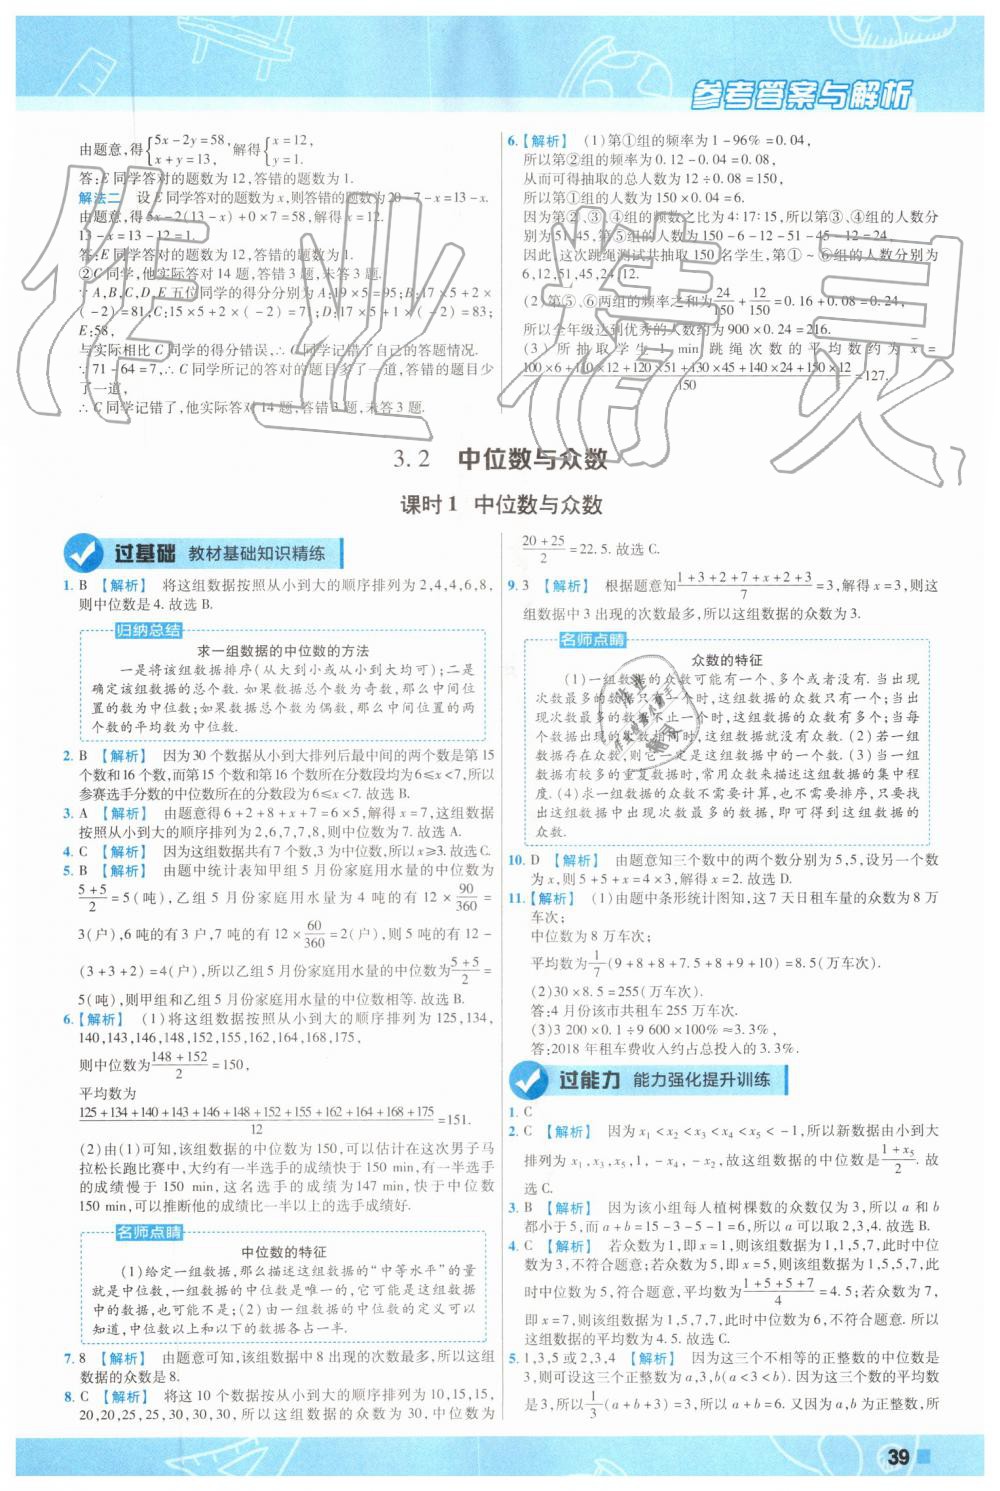 参考答案与解析
由题意,得{5x-2y=58, x+y=13, 解得{x=12, y=1.
答:E同学答对的题数为12,答错的题数为1.
解法二 设E同学答对的题数为x,则答错的题数为20-7-x=13-x.
由题意,得5x-2(13-x)+0×7=58,解得x=12.
13-x=13-12=1.
答:E同学答对的题数为12,答错的题数为1.
②C同学,他实际答对14题,答错3题,未答3题.
∵A,B,C,D,E五位同学的得分分别为A:19×5=95;B:17×5+2×
(-2)=81;C:15×5+2×(-2)=71;D:17×5+1×(-2)=83;
E:58,
与实际相比C同学的得分错误,∴C同学记错了自己的答题情况.
∵71-64=7,∴C同学所记的答对的题目多了一道,答错的题目少
了一道,
∴C同学记错了,他实际答对14题,答错3题,未答3题.
6.【解析】 (1)第①组的频率为1-96%=0.04,
所以第②组的频率为0.12-0.04=0.08,
从而可得抽取的总人数为12÷0.08=150,
所以第①组的人数为150×0.04=6.
因为第②、③、④组的频数之比为4:17:15,所以第③、④组的人数分
别为51,45,第⑤组的人数为150-6-12-51-45-12=24,
因此,这次跳绳测试共抽取150名学生,第①~⑥组的人数分别为
6,12,51,45,24,12.
(2)第⑤、⑥两组的频率之和为24/150+12/150=0.16+0.08=0.24,
所以全年级达到优秀的人数约为900×0.24=216.
(3)所抽取学生1 min跳绳次数的平均数约为x̄=
(100×6+110×12+120×51+130×45+140×24+150×12)/150=127.
3.2 中位数与众数
课时1 中位数与众数
过基础 教材基础知识精练
1. B 【解析】 将这组数据按照从小到大的顺序排列为2,4,4,6,8,
则中位数是4.故选B.
归纳总结
求一组数据的中位数的方法
一是将该组数据排序(从大到小或从小到大均可);二是
确定该组数据的总个数.如果数据总个数为奇数,那么中间位
置的数为中位数;如果数据总个数为偶数,那么中间位置的两
个数的平均数为中位数.
2. B 【解析】 因为30个数据从小到大排列后最中间的两个数是第15
个数和16个数,而第15个数和第16个数所在分数段均为6≤x<7,所以
参赛选手分数的中位数所在的分数段为6≤x<7.故选B.
3. A 【解析】 由题意得6+2+8+x+7=6×5,解得x=7,这组数据
按照从小到大的顺序排列为2,6,7,7,8,则中位数为7.故选A.
4. C 【解析】 因为这组数据共有7个数,3为中位数,所以x≥3.故选C.
5. B 【解析】 由题中统计表知甲组5月份家庭用水量的中位数为
(5+5)/2=5(吨),乙组5月份家庭用水量为4吨的有12×90/360=
3(户),6吨的有3户,7吨的有12×60/360=2(户),则5吨的有12-
(3+3+2)=4(户),所以乙组5月份家庭用水量的中位数为(5+5)/2=
5(吨),则甲组和乙组5月份家庭用水量的中位数相等.故选B.
6.【解析】 (1)将这组数据按照从小到大的顺序排列为125,134,
140,143,146,148,152,155,162,164,168,175,
则中位数为(148+152)/2=150,
平均数为
(125+134+140+143+146+148+152+155+162+164+168+175)/12=151.
(2)由(1)可知,该组数据的中位数为150,可以估计在这次男子马
拉松长跑比赛中,大约有一半选手的成绩快于150 min,有一半选手
的成绩慢于150 min,这名选手的成绩为147 min,快于中位数
150 min,可以推断他的成绩比一半以上的选手成绩好.
名师点睛
中位数的特征
(1)给定一组数据,那么描述这组数据的“中等水平”的量
就是中位数,一组数据的中位数是唯一的,它可能是这组数据
中的数据,也可能不是;(2)由一组数据的中位数的定义可以
知道,中位数以上和以下的数据各占一半.
7. 8 【解析】 由题意可知,该组数据中8出现的次数最多,所以这组
数据的众数是8.
8. C 【解析】 将这10个数据按从小到大的顺序排列为10,15,15,
20,20,25,25,30,30,30,所以这组数据的众数为30,中位数为
(20+25)/2=22.5.故选C.
9. 3 【解析】 根据题意知(1+3+2+7+x+2+3)/7=3,解得x=3,则这
组数据中3出现的次数最多,所以这组数据的众数为3.
名师点睛
众数的特征
(1)一组数据的众数可能有一个、多个或者没有.当出现
次数最多的数据只有一个时,这组数据的众数只有一个;当出
现次数最多的数据不止一个时,这组数据的众数有多个;当每
个数据出现的次数相同时,这组数据就没有众数.(2)若一组
数据存在众数,则它一定是这组数据中的一个数.(3)当一组
数据有较多的重复数据时,常用众数来描述这组数据的集中程
度.(4)求一组数据的众数不需要计算,也不需要排序,只要找
出这组数据中出现次数最多的数据,即可得到这组数据的
众数.
10. D 【解析】 由题意知三个数中的两个数分别为5,5,设另一个数
为x,则5+5+x=4×3,解得x=2.故选D.
11.【解析】 (1)由题中条形统计图知,这7天日租车量的众数为8万
车次;
中位数为8万车次;
平均数为1/7(9+8+8+7.5+8+9+10)=8.5(万车次).
(2)30×8.5=255(万车次).
答:4月份该市共租车255万车次.
(3)3 200×0.1÷9 600×100%≈3.3%,
答:2018年租车费收入约占总投入的3.3%.
过能力 能力强化提升训练
1. C
2. C 【解析】 因为x₁<x₂<x₃<x₄<x₅<-1,所以新数据由小到大
排列为x₁,x₃,x₅,1,-x₄,-x₂,故这组数据的中位数是(1+x₅)/2.故
选C.
3. B 【解析】 因为该小组每人植树棵数的众数仅为3,所以a和b
都小于5,而a+b=15-3-5-1=6,所以a可以取2,3,4.故选B.
4. C 【解析】 若众数为1,即x=1,则该组数据为1,1,5,7,此时中位
数为3,不符合题意;若众数为5,即x=5,则该组数据为1,5,5,7,此
时中位数为5,符合题意,平均数为(1+5+5+7)/4=4.5;若众数为7,
即x=7,则该组数据为1,5,7,7,此时中位数为6,不符合题意.所以
这组数据的平均数为4.5.故选C.
5. 1,3,5或2,3,4 【解析】 因为这三个不相等的正整数的中位数是
3,则可设这三个正整数为a,3,b(a<3<b).因为这三个数的平均数
是3,所以1/3(a+b+3)=3,所以a+b=6.又因为a,b为正整数,所
39
作业精灵